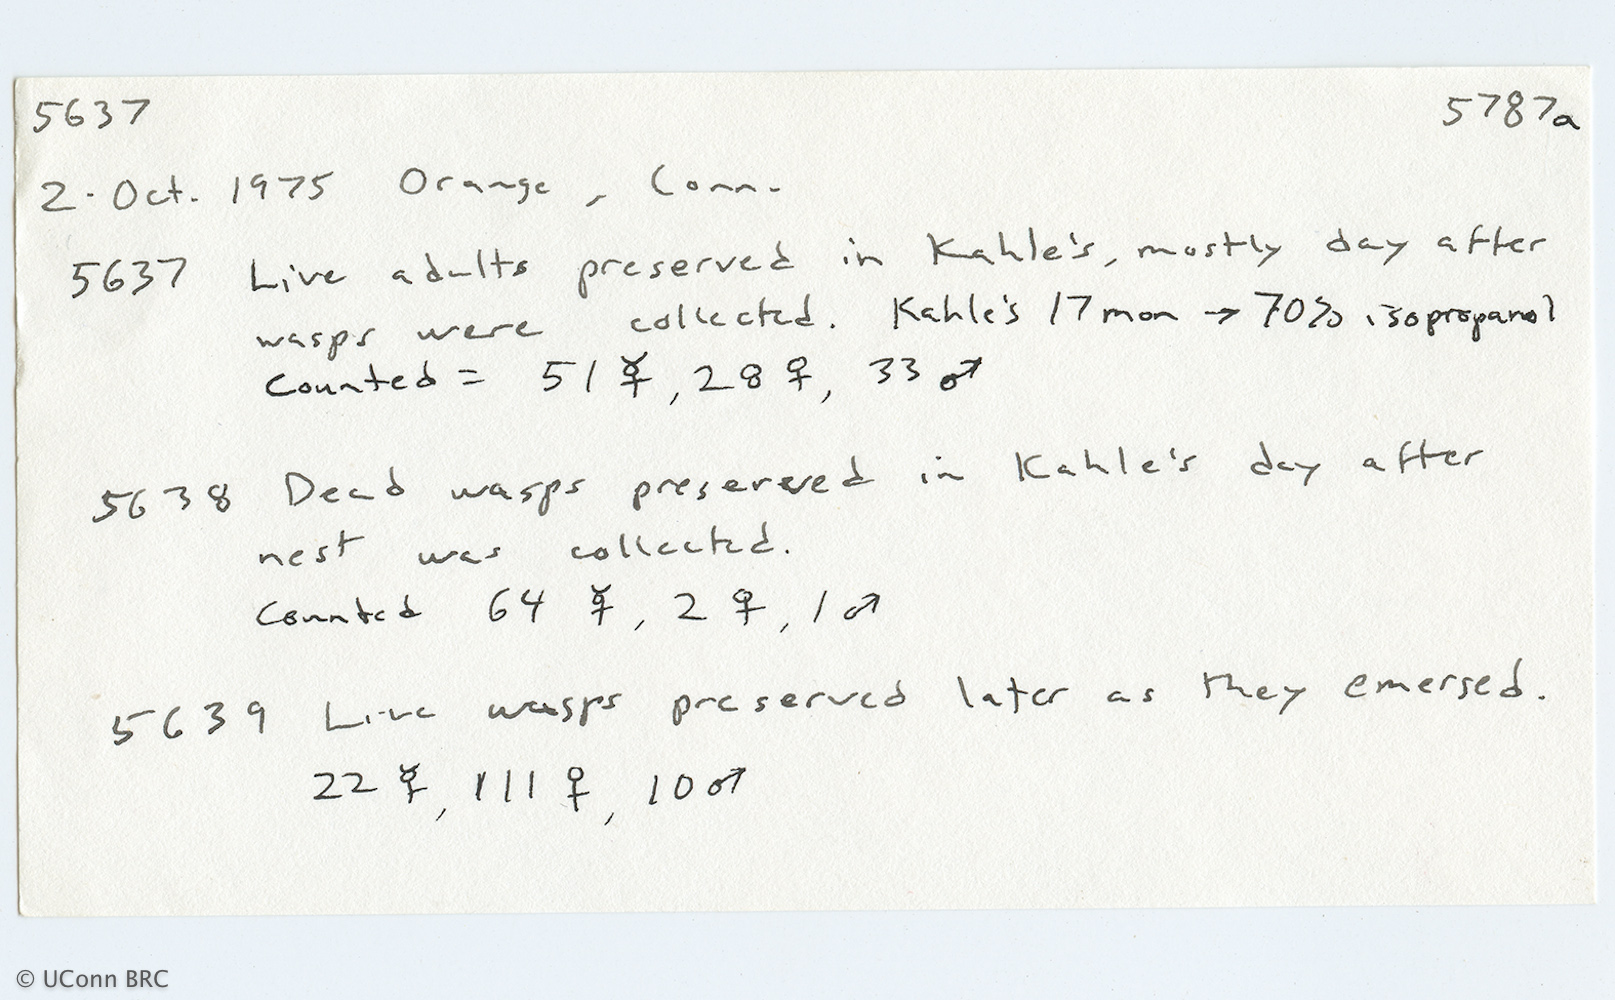 5637 5787a
2. Oct. 1975 Orange, Conn.
5637 Live adults preserved in Kahle's, mostly day after
wasps were collected. Kahle's 17 mon → 70% isopropanol
Counted = 51 ☿, 28 ♀, 33 ♂
5638 Dead wasps preserved in Kahle's day after
nest was collected.
Counted 64 ☿, 2 ♀, 1 ♂
5639 Live wasps preserved later as they emersed.
22 ☿, 111 ♀, 10 ♂
© UConn BRC